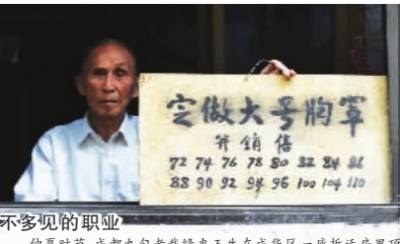 定做大号胸罩
并銷售
72 74 76 78 80 82 84 86
88 90 92 94 96 100 104 110
不多见的职业
仲夏时节,成都九旬老裁缝